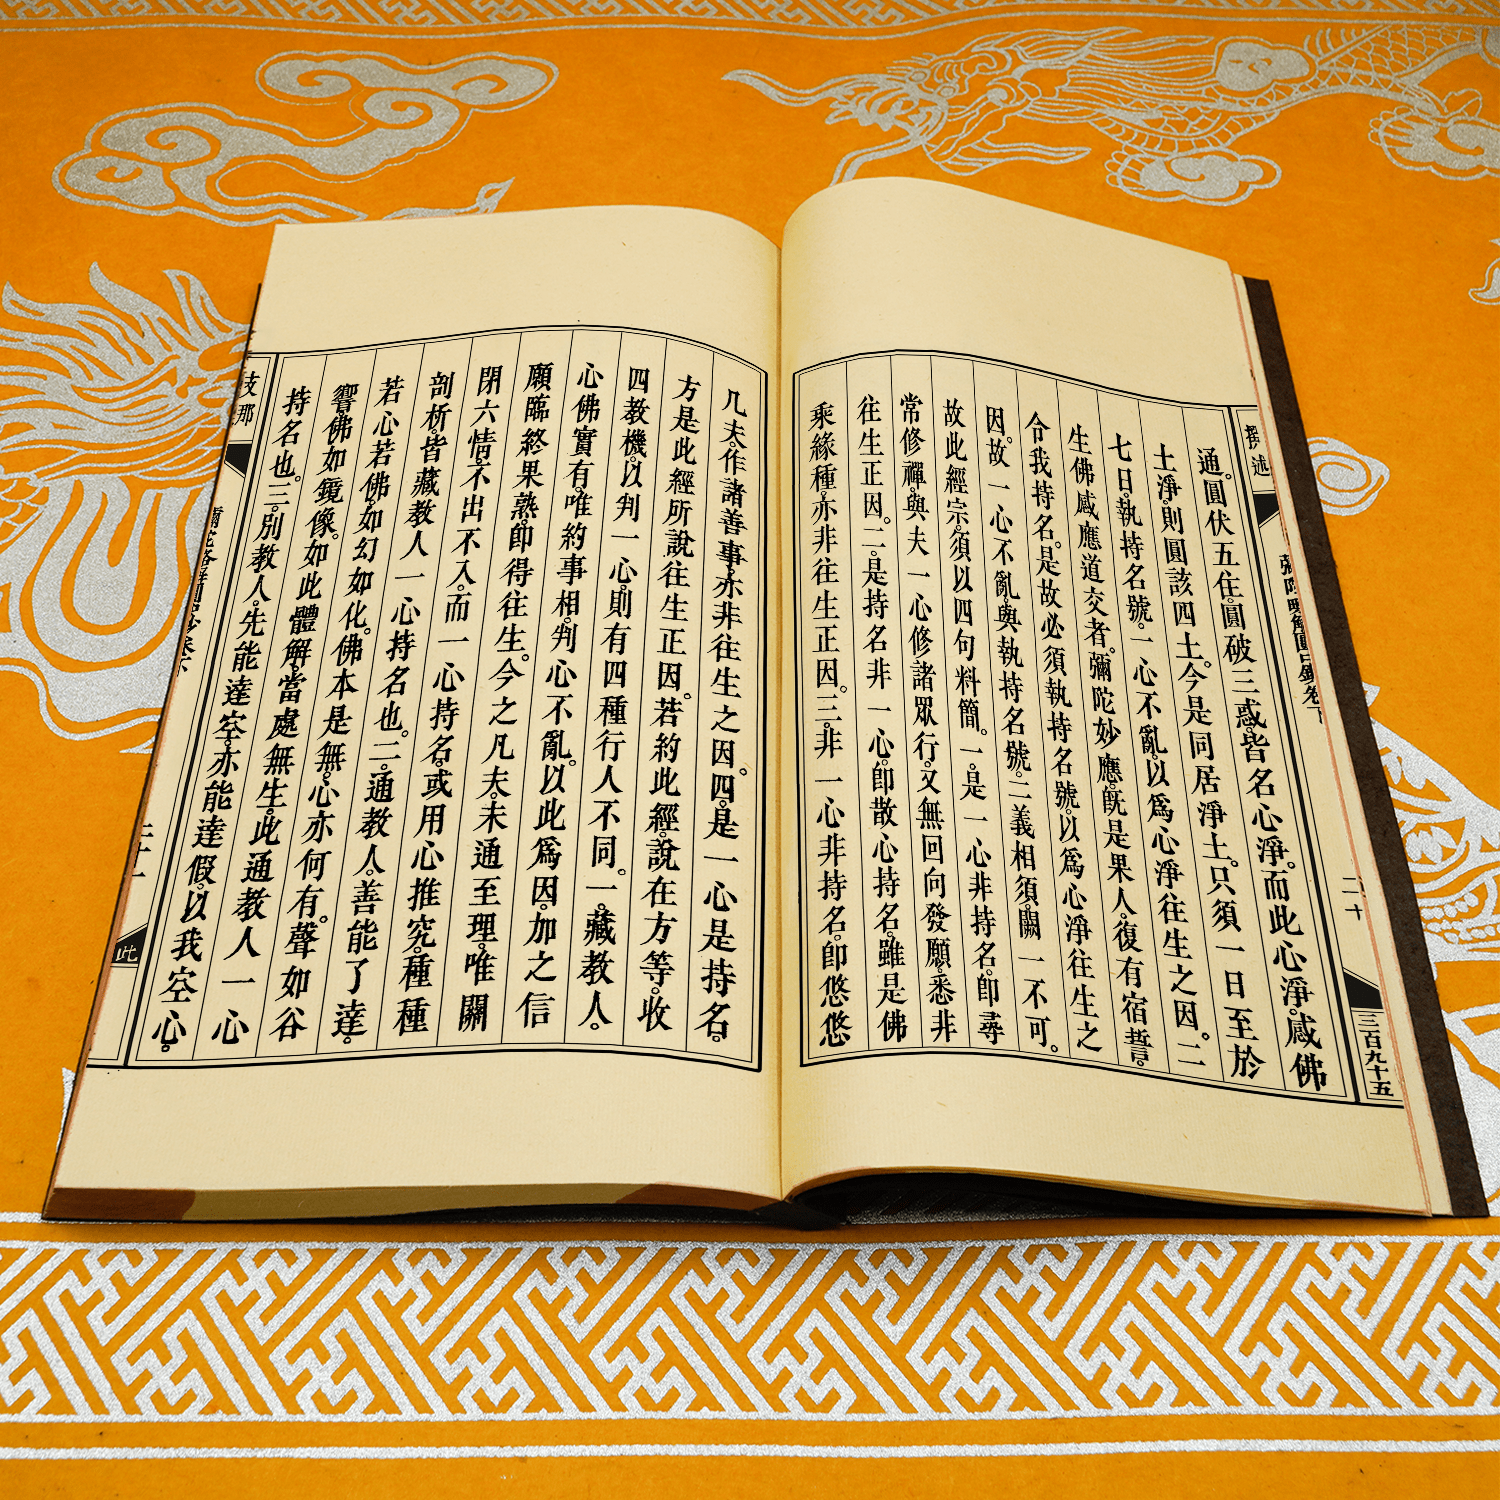 撰述
彌陀略解圓中鈔卷下
二十
三百九十五
通。圓伏五住。圓破三惑。皆名心淨。而此心淨。感佛
土淨。則圓該四土。今是同居淨土。只須一日至於
七日。執持名號。一心不亂。以為心淨往生之因。二
生佛感應道交者。彌陀妙應。既是果人。復有宿誓。
令我持名。是故必須執持名號。以為心淨往生之
因。故一心不亂。與執持名號。二義相須。闕一不可。
故此經宗。須以四句料簡。一。是一心非持名。即尋
常修禪。與夫一心修諸眾行。又無回向發願。悉非
往生正因。二。是持名非一心。即散心持名。雖是佛
乘緣種。亦非往生正因。三。非一心非持名。即悠悠
凡夫。作諸善事。亦非往生之因。四。是一心是持名。
方是此經所說往生正因。若約此經。說在方等。收
四教機。以判一心。則有四種行人不同。一。藏教人。
心佛實有。唯約事相。判心不亂。以此為因。加之信
願。臨終果熟。即得往生。今之凡夫。未通至理。唯關
閉六情。不出不入。而一心持名。或用心推究。種種
剖析。皆藏教人一心持名也。二。通教人。善能了達。
若心若佛。如幻如化。佛本是無。心亦何有。聲如谷
響。佛如鏡像。如此體解。當處無生。此通教人一心
持名也。三。別教人。先能達空。亦能達假。以我空心。
支那
此